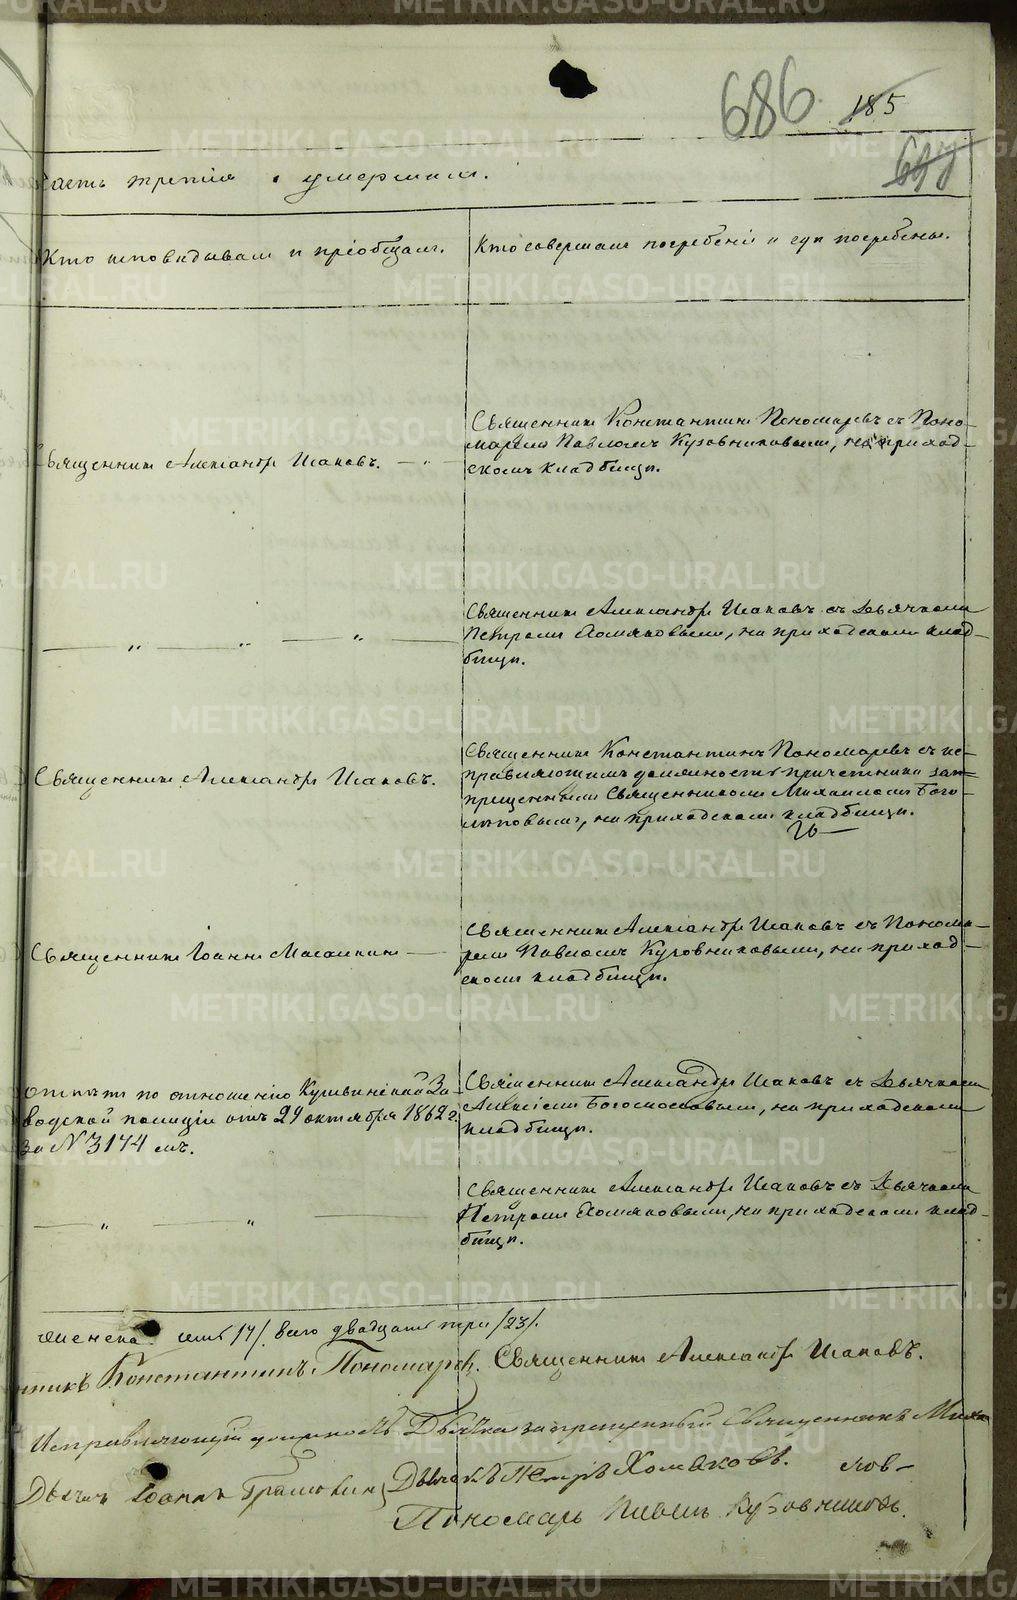 686
185
647
часть третія о умершихъ.
Кто исповѣдывалъ и пріобщалъ.
Кто совершалъ погребеніе и гдѣ погребены.
Священникъ Александръ Исаковъ. — „
Священникъ Константинъ Пономаревъ съ Поно-
маремъ Павломъ Кузовниковымъ, на приход-
скомъ кладбищѣ.
— „ — „ — „ —
Священникъ Александръ Исаковъ съ Дьячкомъ
Петромъ Хомяковымъ, на приходскомъ клад-
бищѣ.
Священникъ Александръ Исаковъ.
Священникъ Константинъ Пономаревъ съ ис-
правляющимъ должность причетника зап-
рещеннымъ Священникомъ Михаиломъ Бого-
лѣповымъ, на приходскомъ кладбищѣ.
Священникъ Іоаннъ Масалкинъ —
Священникъ Александръ Исаковъ съ Понома-
ремъ Павломъ Кузовниковымъ, на приход-
скомъ кладбищѣ.
Отпѣтъ по отношенію Кушвинской За-
водской полиціи отъ 24 октября 1862 г.
за № 3174 мъ.
Священникъ Александръ Исаковъ съ Дьячкомъ
Алексѣемъ Богослововымъ, на приходскомъ
кладбищѣ.
— „ — „ —
Священникъ Александръ Исаковъ съ Дьячкомъ
Петромъ Хомяковымъ, на приходскомъ клад-
бищѣ.
женска /14/. всего двадцать три /23/.
нникъ Константинъ Пономаревъ. Священникъ Александръ Исаковъ.
Исправляющій должность Дьячка запрещенный Священникъ Миха
Дьячекъ Петръ Хомяковъ. лов-
Дьячекъ Іоаннъ
Пономарь Павелъ Кузовниковъ.
METRIKI.GASO-URAL.RU